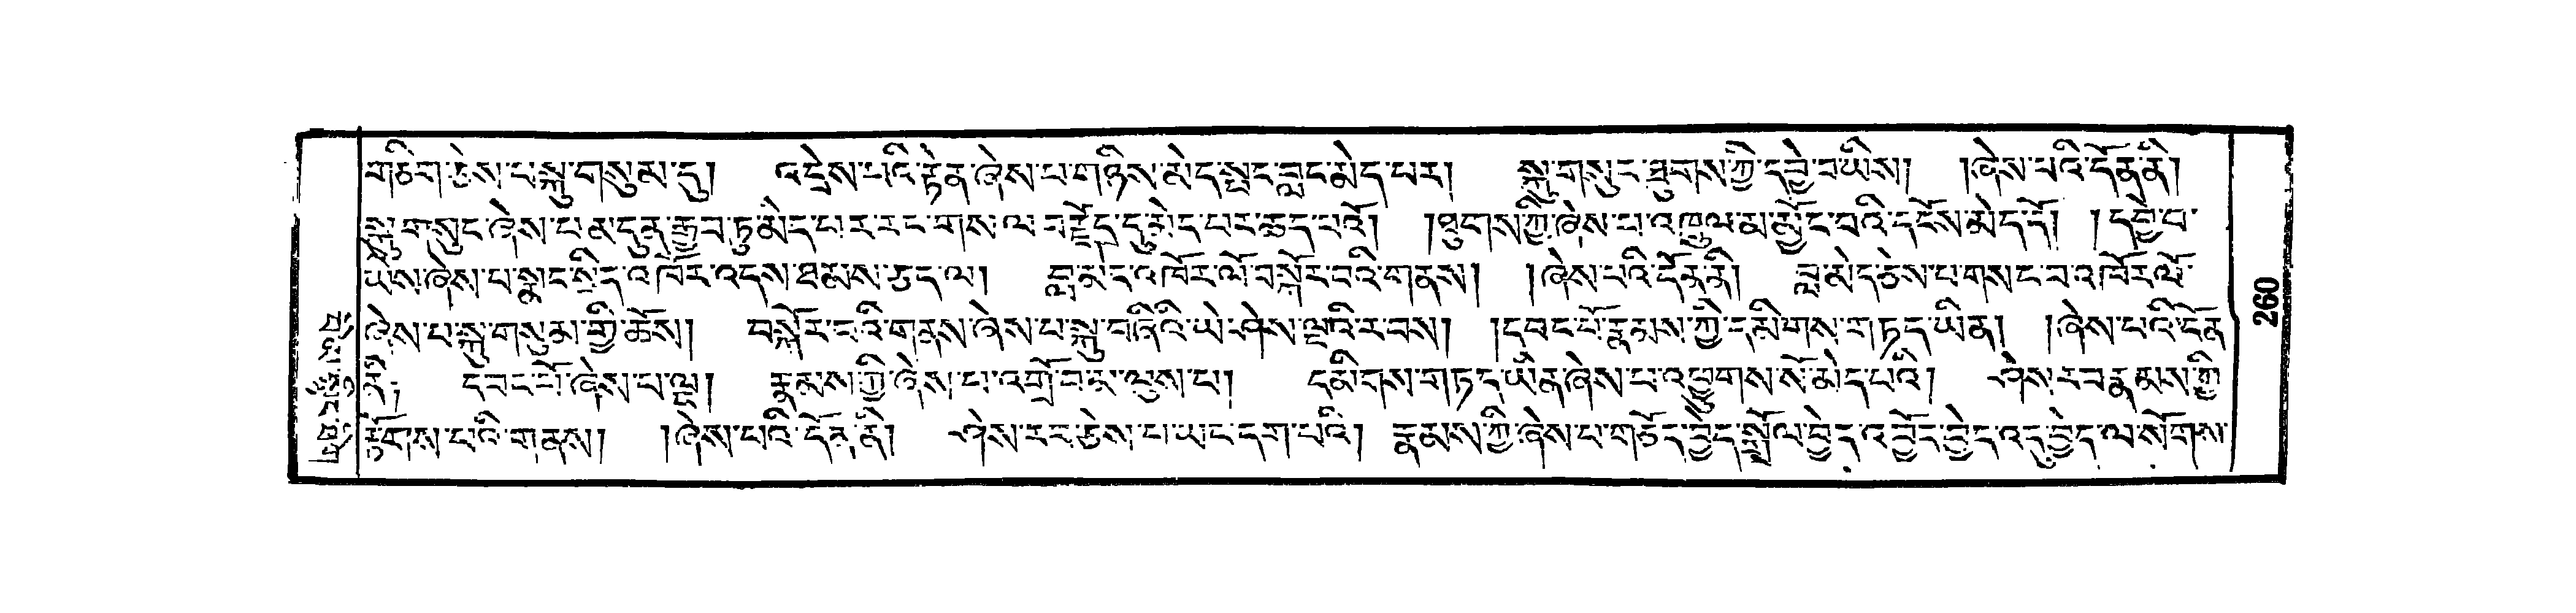 གཅིག་ཅེས་པ་སྐུ་གསུམ་དུ། འདྲེས་པའི་རྟེན་ཞེས་པ་གཉིས་མེད་སྤང་བླང་མེད་པར། སྐུ་གསུང་ཐུགས་ཀྱི་དབྱེ་བ་ཡིས། །ཞེས་པའི་དོན་ནི།
སྐུ་གསུང་ཞེས་པ་མདུན་རྒྱབ་ཏུ་མེད་པར་རང་གས་ལ་བརྗོད་དུ་མེད་པར་ཆད་པའོ། །ཐུགས་ཀྱི་ཞེས་པ་འཁྲུལ་མ་མྱོང་བའི་དངོས་མེད་དོ། །དབྱེ་བ་
ཡིས་ཞེས་པ་སྣང་སྲིད་འཁོར་འདས་ཐམས་ཅད་ལ། བླ་མེད་འཁོར་ལོ་བསྐོར་བའི་གནས། །ཞེས་པའི་དོན་ནི། བླ་མེད་ཅེས་པ་གསང་བ་འཁོར་ལོ་
ཞེས་པ་སྐུ་གསུམ་གྱི་ཆོས། བསྐོར་བའི་གནས་ཞེས་པ་སྐུ་བཞིའི་ཡེ་ཤེས་ལྔའི་རབས། །དབང་པོ་རྣམས་ཀྱི་དམིགས་གཏད་ཡིན། །ཞེས་པའི་དོན་
ནི། དབང་པོ་ཞེས་པ་ལྔ། རྣམས་ཀྱི་ཞེས་པ་འགྲོ་བ་མ་ལུས་པ། དམིགས་གཏད་ཡིན་ཞེས་པ་འཕྱུགས་སོ་མེད་པའི། ཤེས་རབ་རྣམས་ཀྱི་
རྟོགས་པའི་གནས། །ཞེས་པའི་དོན་ནི། ཤེས་རབ་ཅེས་པ་ཡང་དག་པའི། རྣམས་ཀྱི་ཞེས་པ་གཅོད་བྱེད་སྒྲོལ་བྱེད་འབྱོར་བྱེད་འདུ་བྱེད་ལ་སོགས་
260